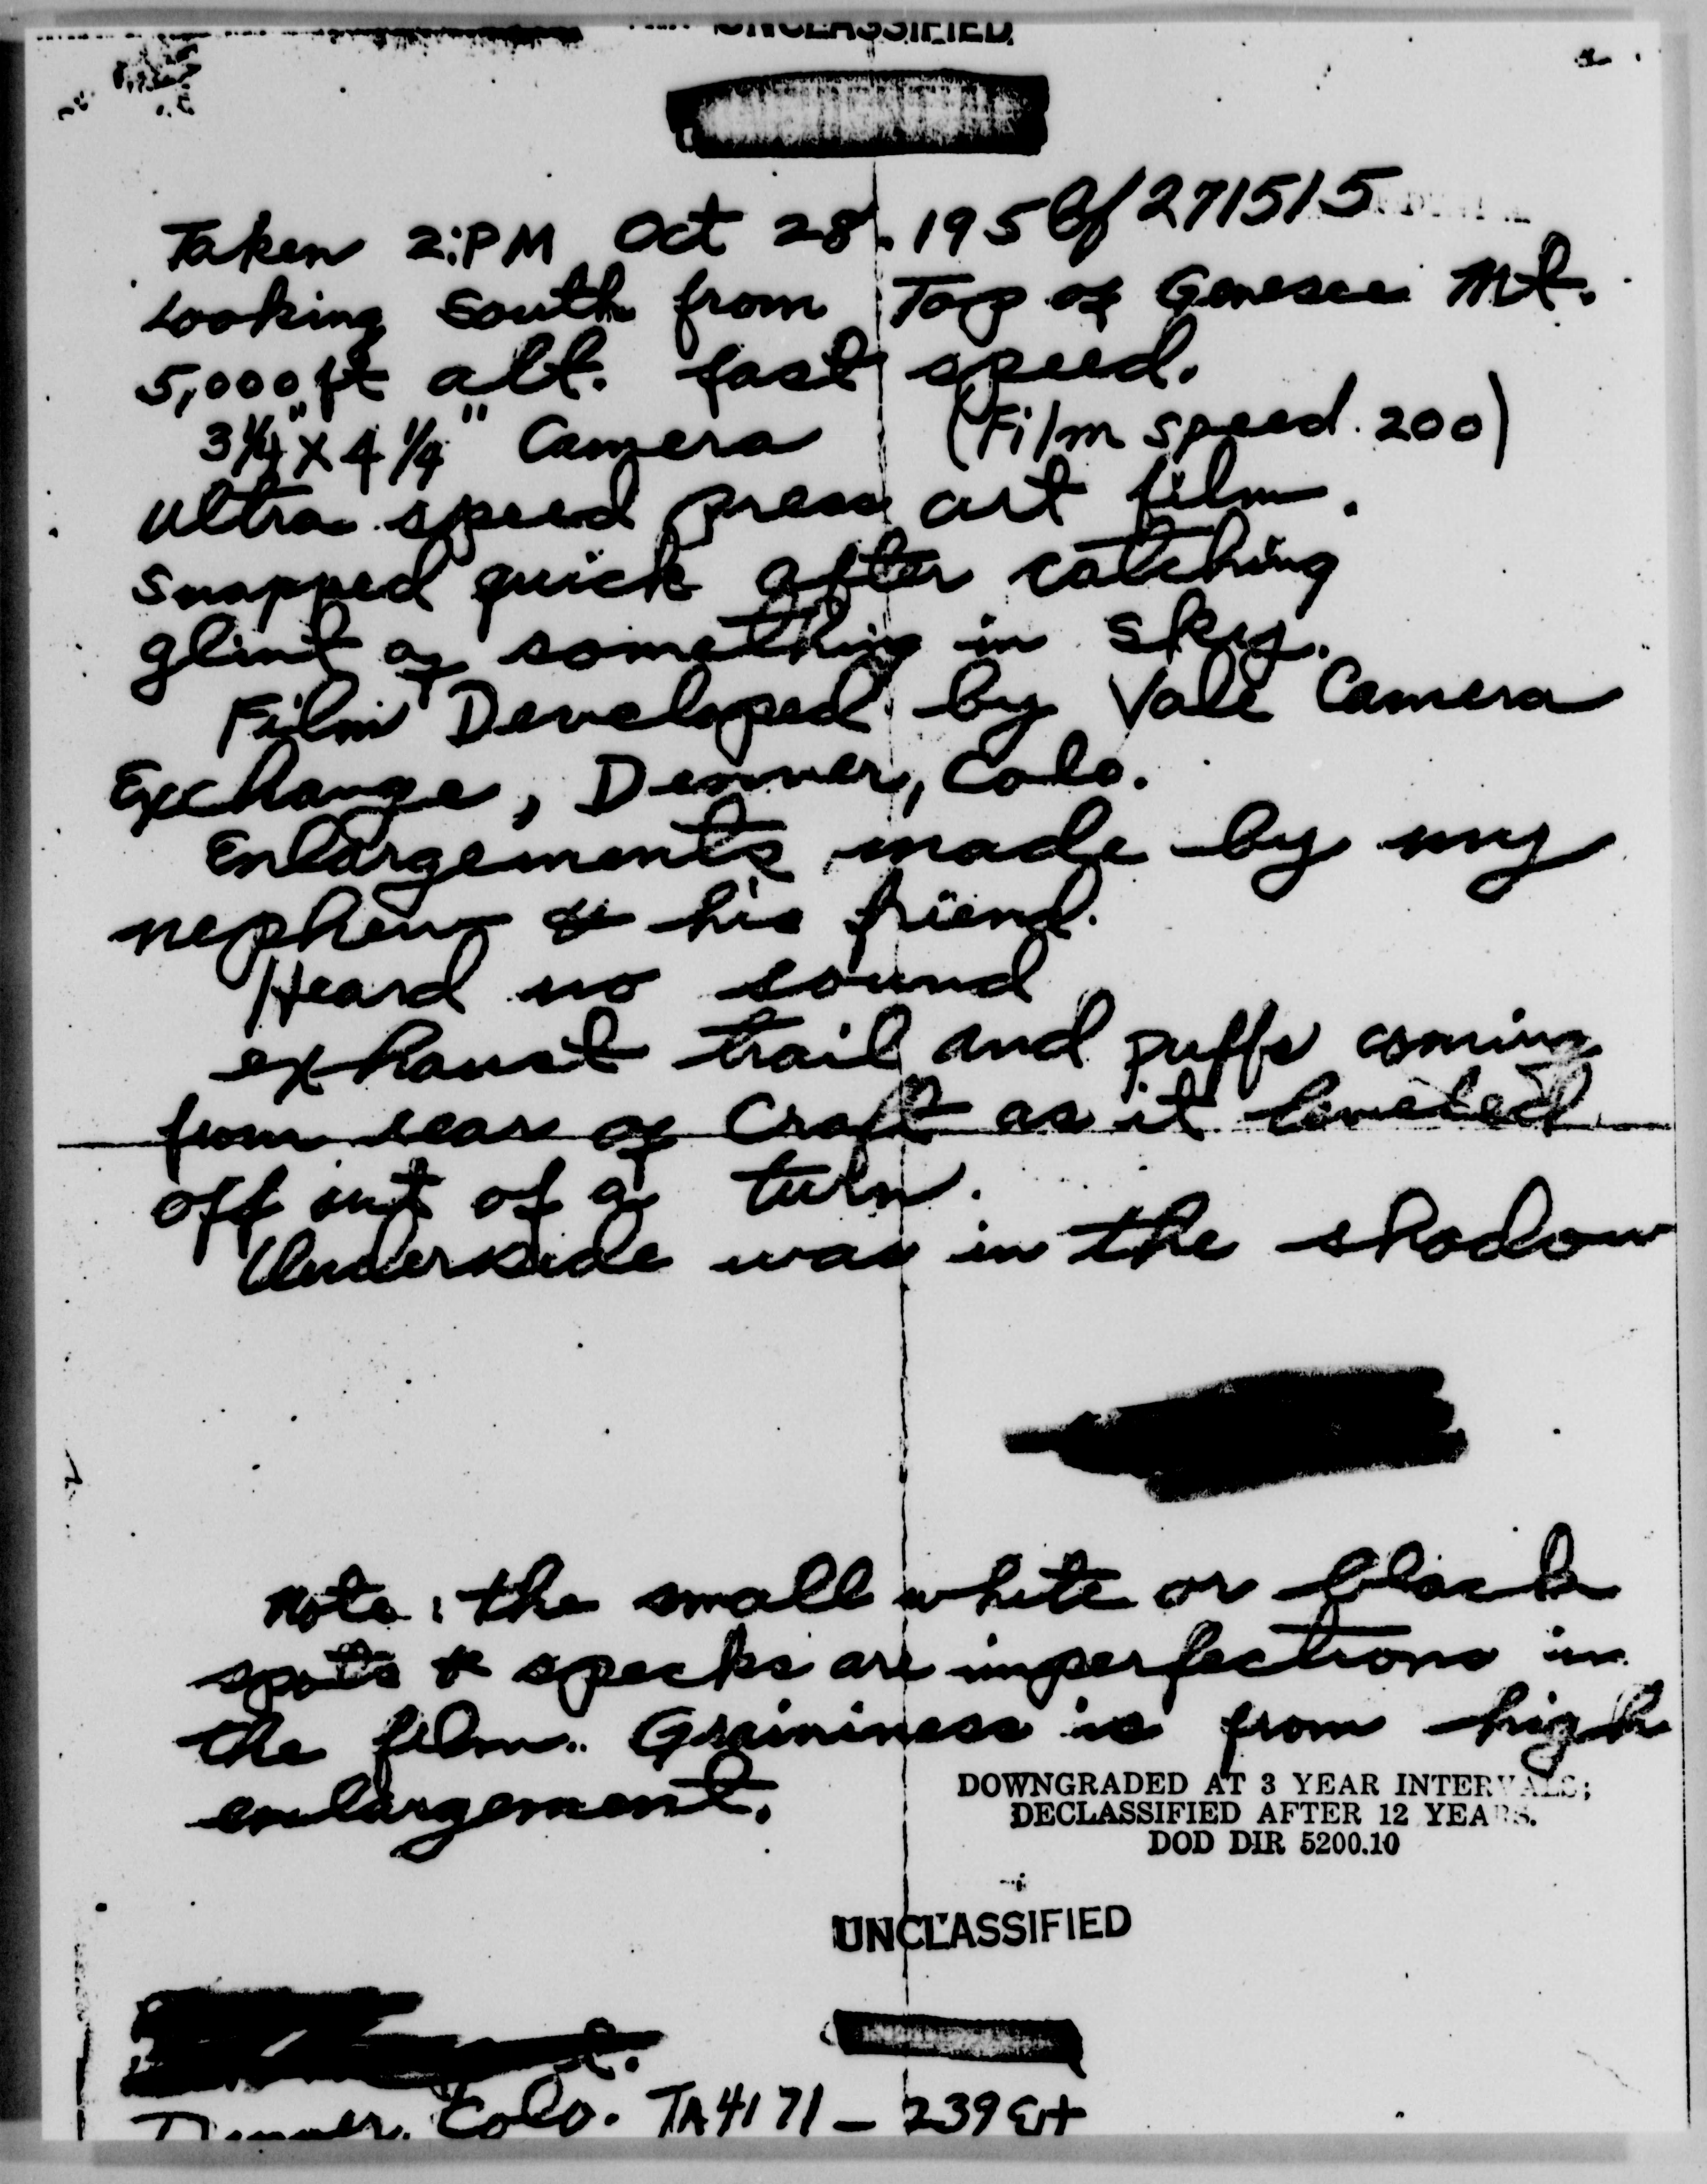 UNCLASSIFIED
Taken 2:PM Oct 28, 1956 271515
Looking South from Top of Genesee Mt.
5,000 ft alt. fast speed.
3 1/4" x 4 1/4" Camera (Film speed 200)
Ultra speed press cut film.
Snapped quick after catching
glint of something in sky.
Film Developed by Vale Camera
Exchange, Denver, Colo.
Enlargements made by my
nephew & his friend.
Heard no sound
exhaust trail and puffs coming
from rear of Craft as it leveled
off out of a turn.
Underside was in the shadow
Note: the small white or black
spots & specks are imperfections in
the film. Graininess is from high
enlargement.
DOWNGRADED AT 3 YEAR INTERVALS;
DECLASSIFIED AFTER 12 YEARS.
DOD DIR 5200.10
UNCLASSIFIED
Denver, Colo. TA4171 - 239 Ext